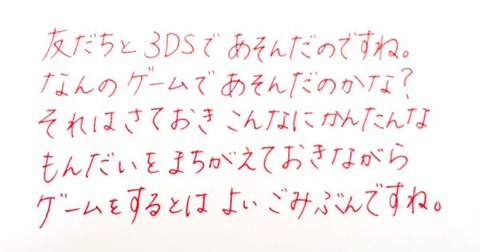 友だちと3DSであそんだのですね。
なんのゲームであそんだのかな?
それはさておきこんなにかんたんな
もんだいをまちがえておきながら
ゲームをするとはよいごみぶんですね。